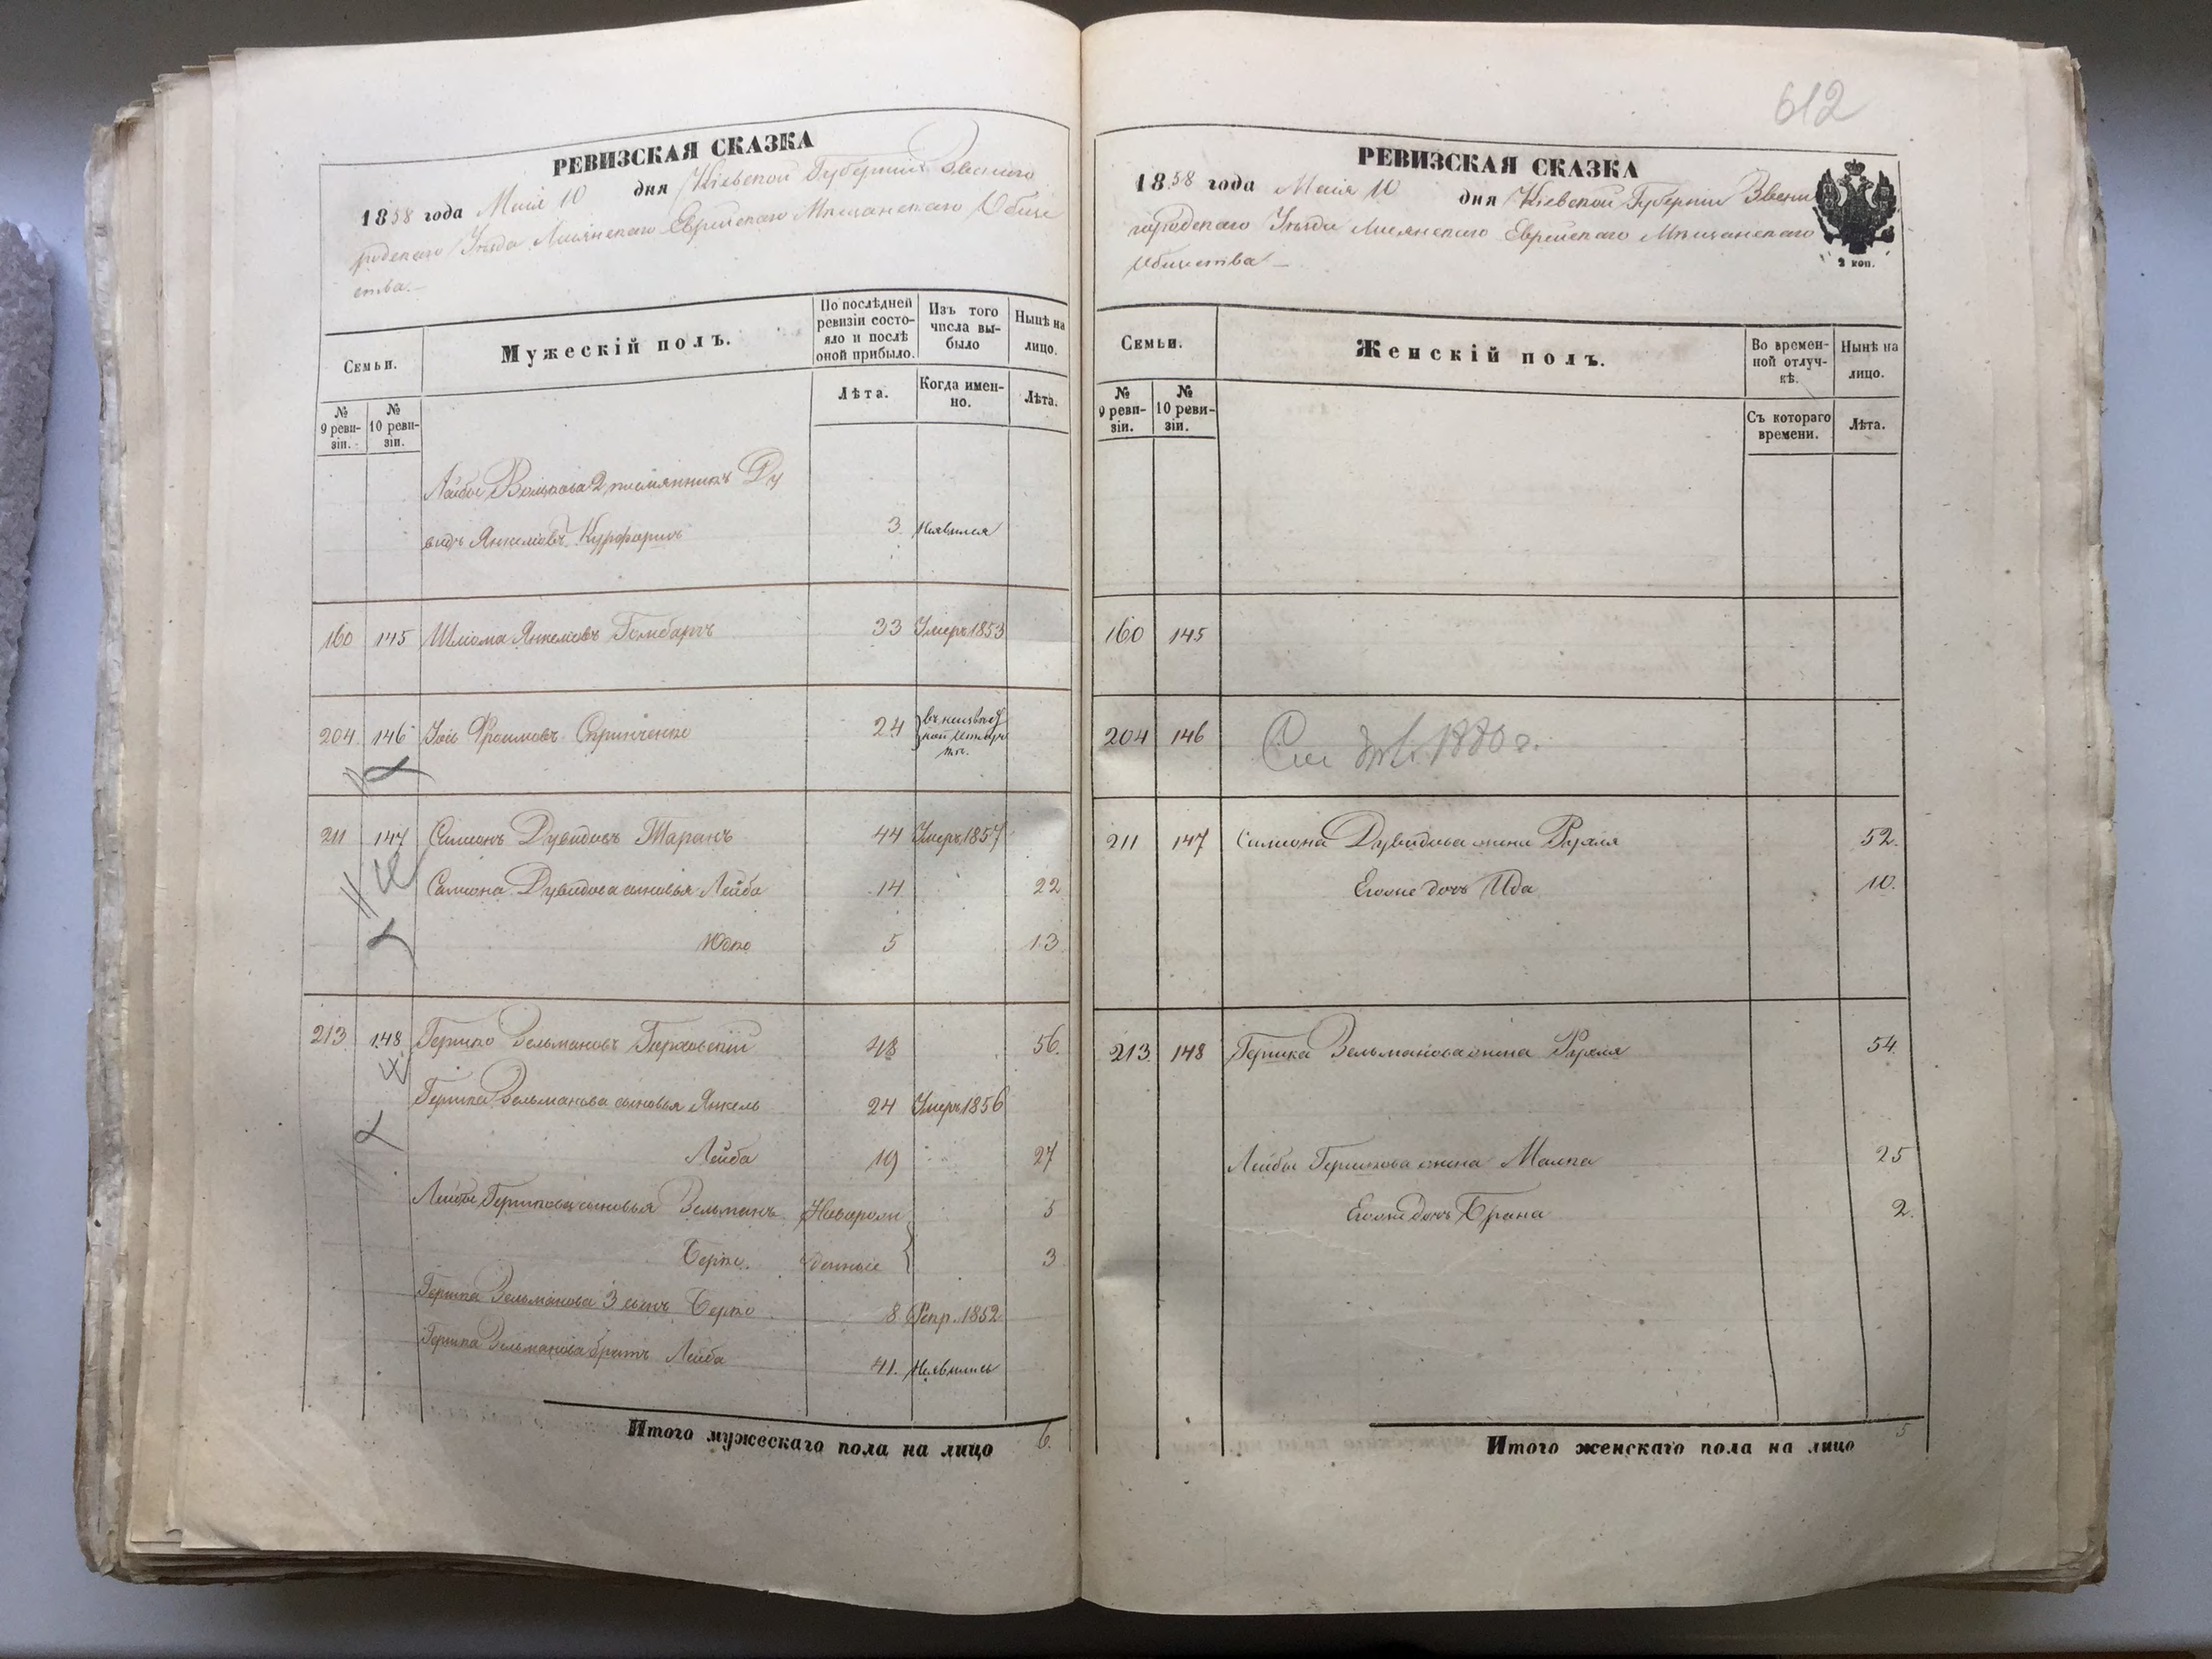 612
РЕВИЗСКАЯ СКАЗКА
1858 года Маія 10 дня Кіевской Губерніи Звениго
родскаго Уѣзда Лисянскаго Еврейскаго Мѣщанскаго Обще
ства.
Семьи.
Мужескій полъ.
По послѣдней ревизіи состояло и послѣ оной прибыло.
Изъ того числа выбыло
Нынѣ на лицо.
№ 9 ревизіи.
№ 10 ревизіи.
Лѣта.
Когда именно.
Лѣта.
Лейбы Волькова 2 племянникъ Ду
видъ Янкелевъ 3 Неявился
160 145 Шлiома Янкелевъ 33 Умеръ 1853
204 146 Фроимовъ 24
211 147 Симонъ Дувидовъ Таранъ 44 Умеръ 1857
Симона Дувидова сыновья Лейба 14 22
Юдко 5 13
213 148 Гершко Зельмановъ 48 56.
Гершка Зельманова сыновья Янкель 24 Умеръ 1856
Лейба 19 27
Лейбы Гершкова сыновья Зельманъ Новорож 5
Берко. денные 3
Гершка Зельманова 3 сынъ Берко 8 Рекр. 1852
Гершка Зельманова братъ Лейба 41. Неявились
Итого мужескаго пола на лицо 6.
РЕВИЗСКАЯ СКАЗКА
1858 года Маія 10 дня Кіевской Губерніи Звени
городскаго Уѣзда Лисянскаго Еврейскаго Мѣщанскаго
Общества
2 коп.
Семьи.
Женскій полъ.
Во временной отлучкѣ.
Нынѣ на лицо.
№ 9 ревизіи.
№ 10 ревизіи.
Съ котораго времени.
Лѣта.
160 145
204 146 1880 г.
211 147 Симона Дувидова жена Рухля 52.
Егоже дочь Ида 10.
213 148 Гершка Зельманова жена Рухля 54.
Лейбы Гершкова жена Малка 25
Егоже дочь Брана 2.
Итого женскаго пола на лицо 5